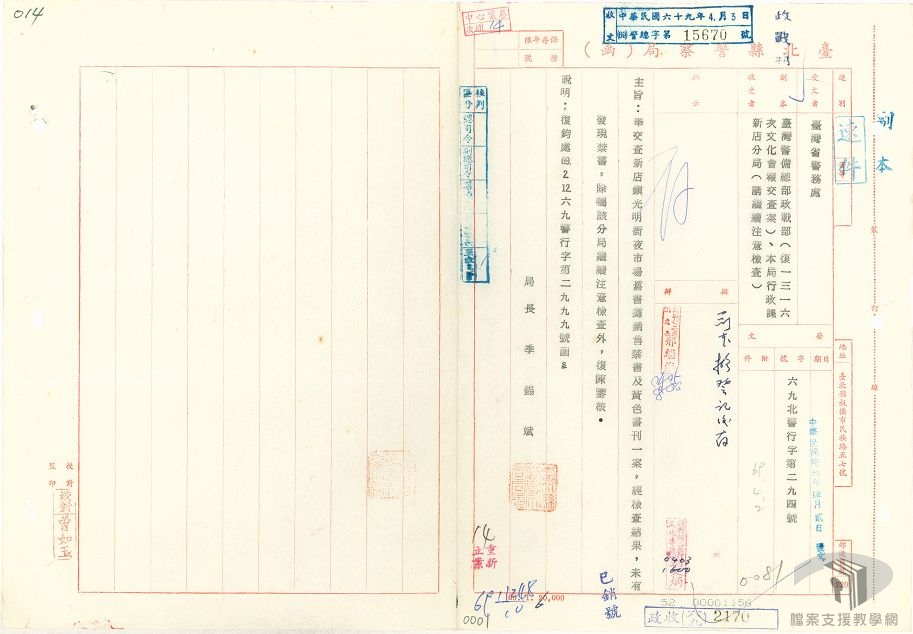 014
收文 中華民國六十九年4.月3日
(69)警總字第 15670 號
臺北縣警察局(函)
保存年限
檔號
速別
速件
副本
受文者
臺灣省警務處
副本
收受者
臺灣警備總部政戰部(復一三一六
次文化會報交查案)、本局行政課
新店分局(請繼續注意檢查)
批示
擬辦
發文
日期
字號
附件
中華民國陸拾玖年肆月貳日
六九北警行字第二九四號
地址
臺北縣板橋市民族路五七號
裝
訂
線
主旨:奉交查新店鎮光明街夜市場舊書攤銷售禁書及黃色書刊一案,經檢查結果,未有
發現禁書,除囑該分局繼續注意檢查外,復陳鑒核。
說明:復鈞處69.2.12.六九警行字第二九九九號函。
局長 季錫斌
校對
監印
校對 曾如玉
14
重新立案
已銷號
0081
0403
1600
20,000
0001
52 00001156
政收 2170
檔案支援教學網